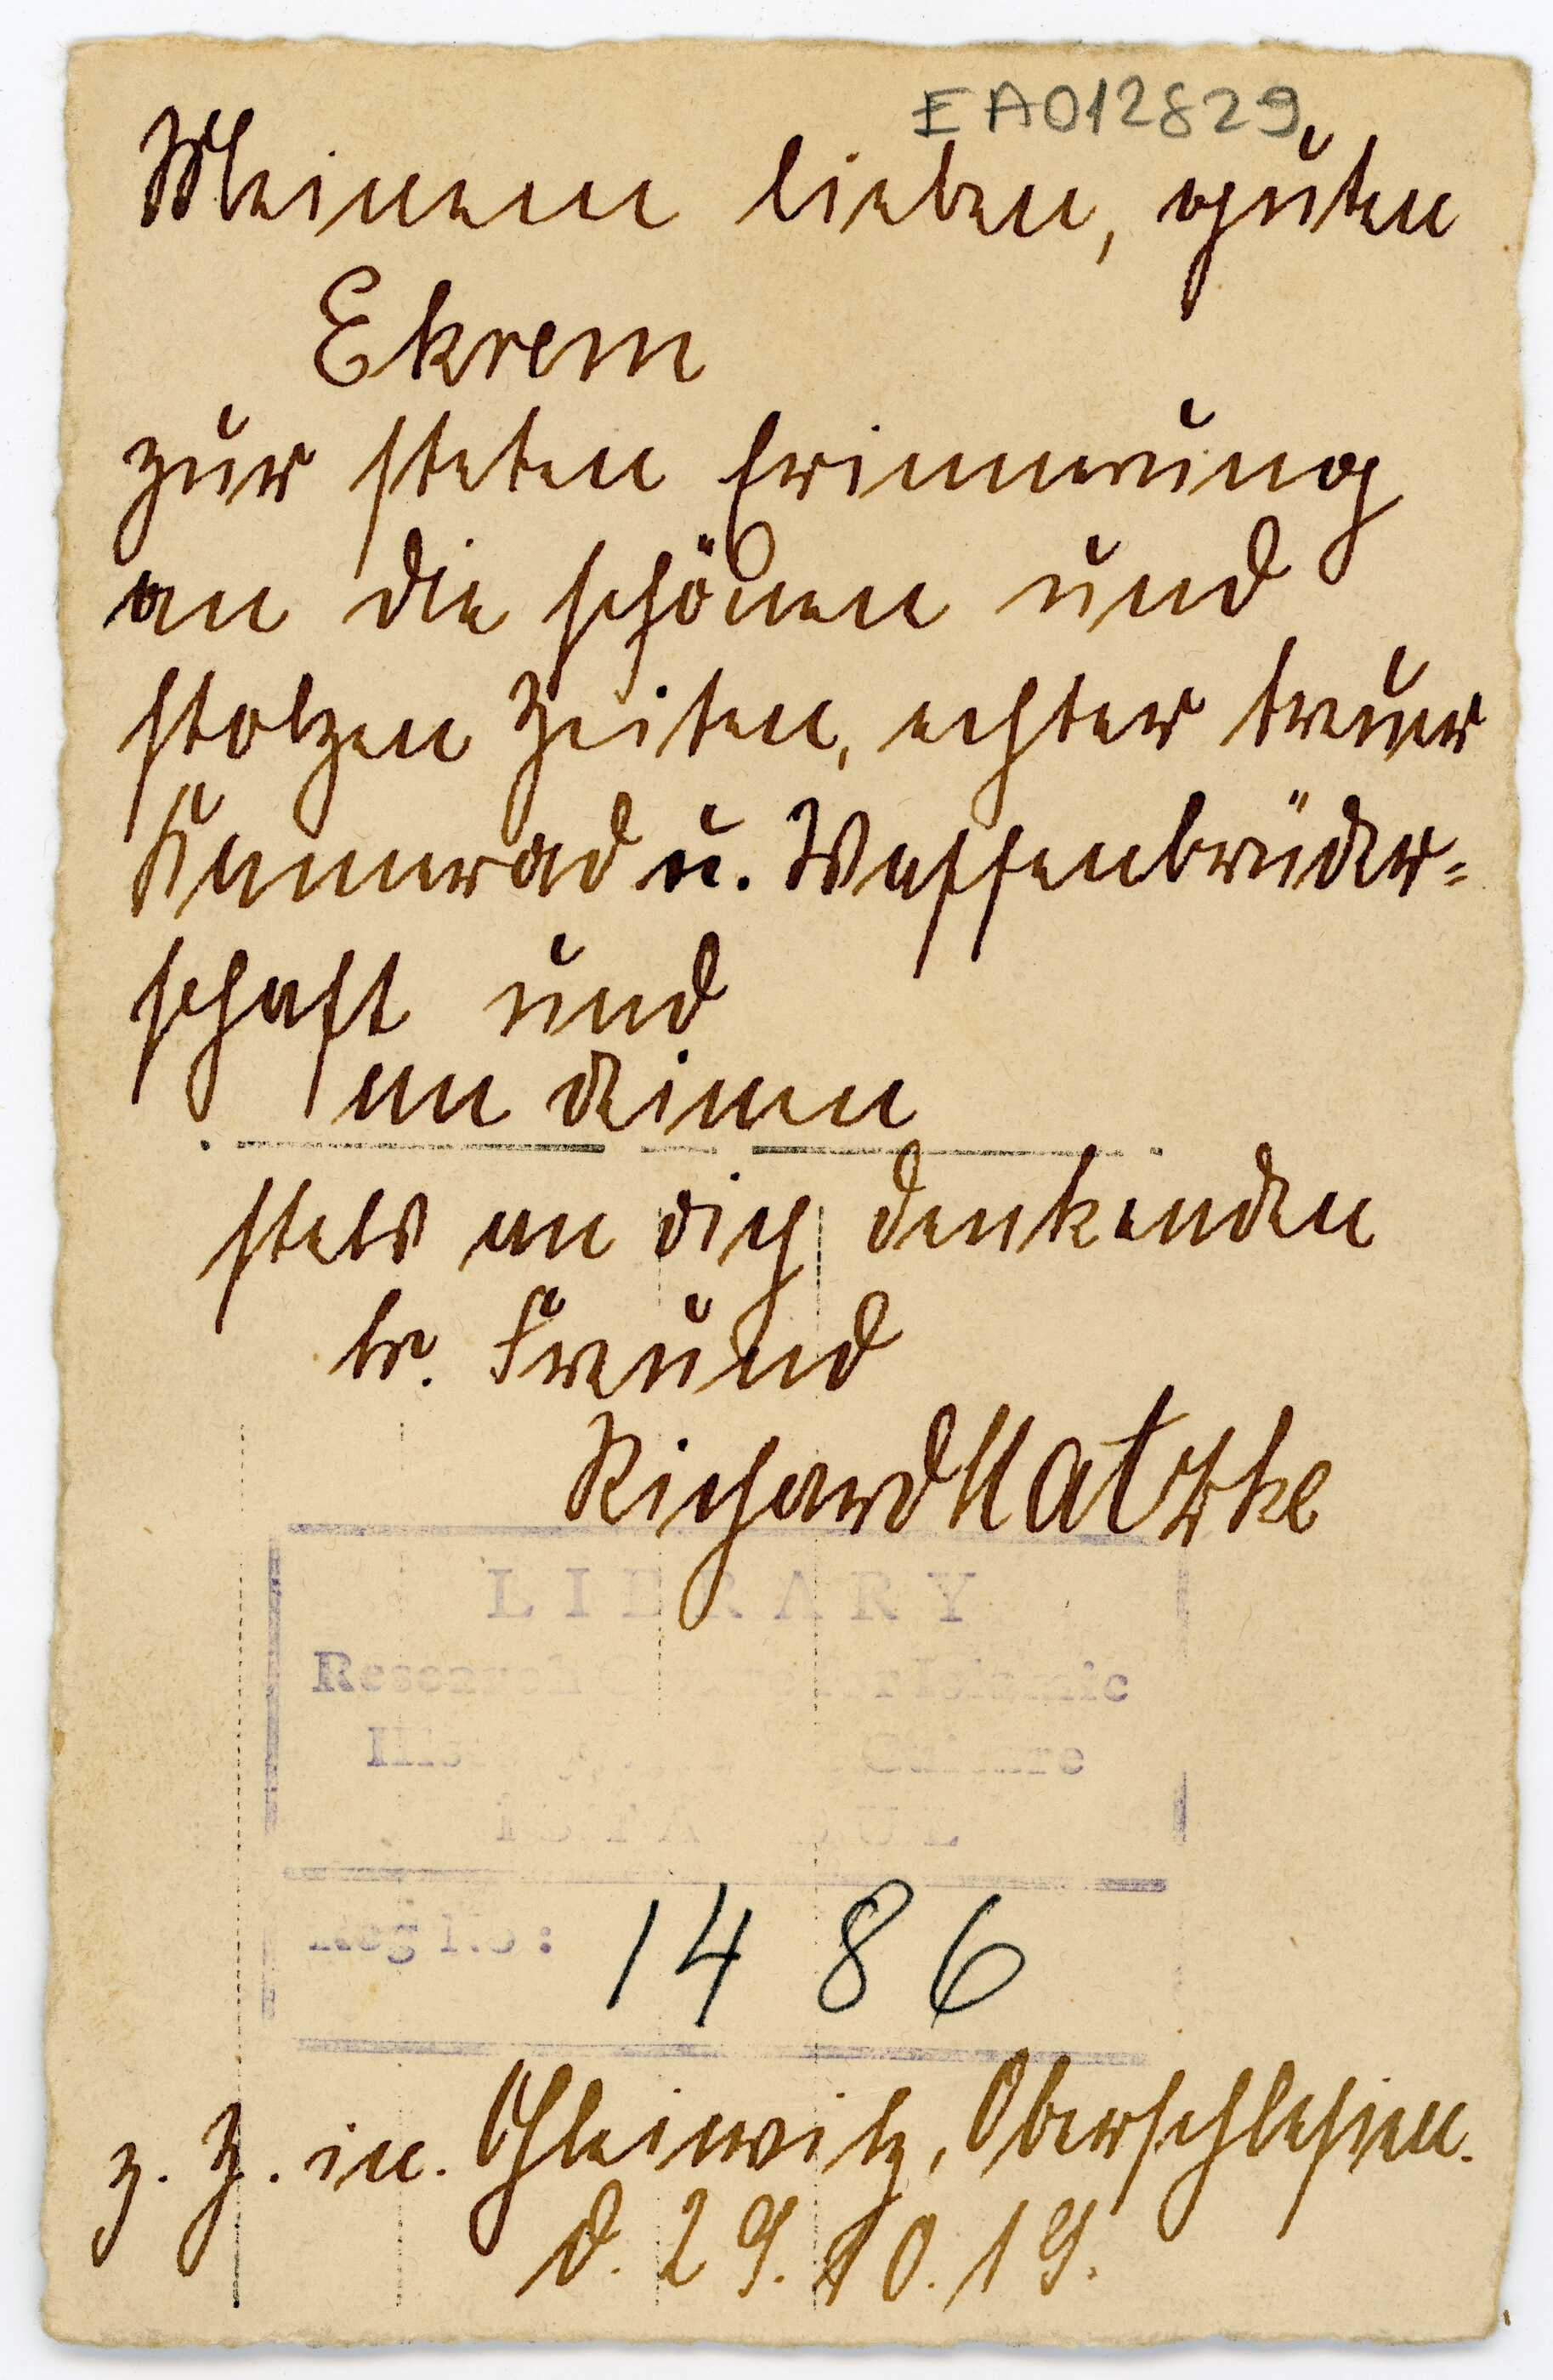 EA012829
Meinem lieben, guten
Ekrem
zur steten Erinnerung
an die schönen und
stolzen Zeiten, echter treuer
Kammerad u. Waffenbrüder=
schaft und
an deinen
stets an dich denkenden
tr. Freund
Richard Matzke
LIBRARY
Research Islamic
Culture
ISTANBUL
Reg No: 1486
z. Z. in. Gleiwitz, Oberschlesien.
d. 29. 10. 19.